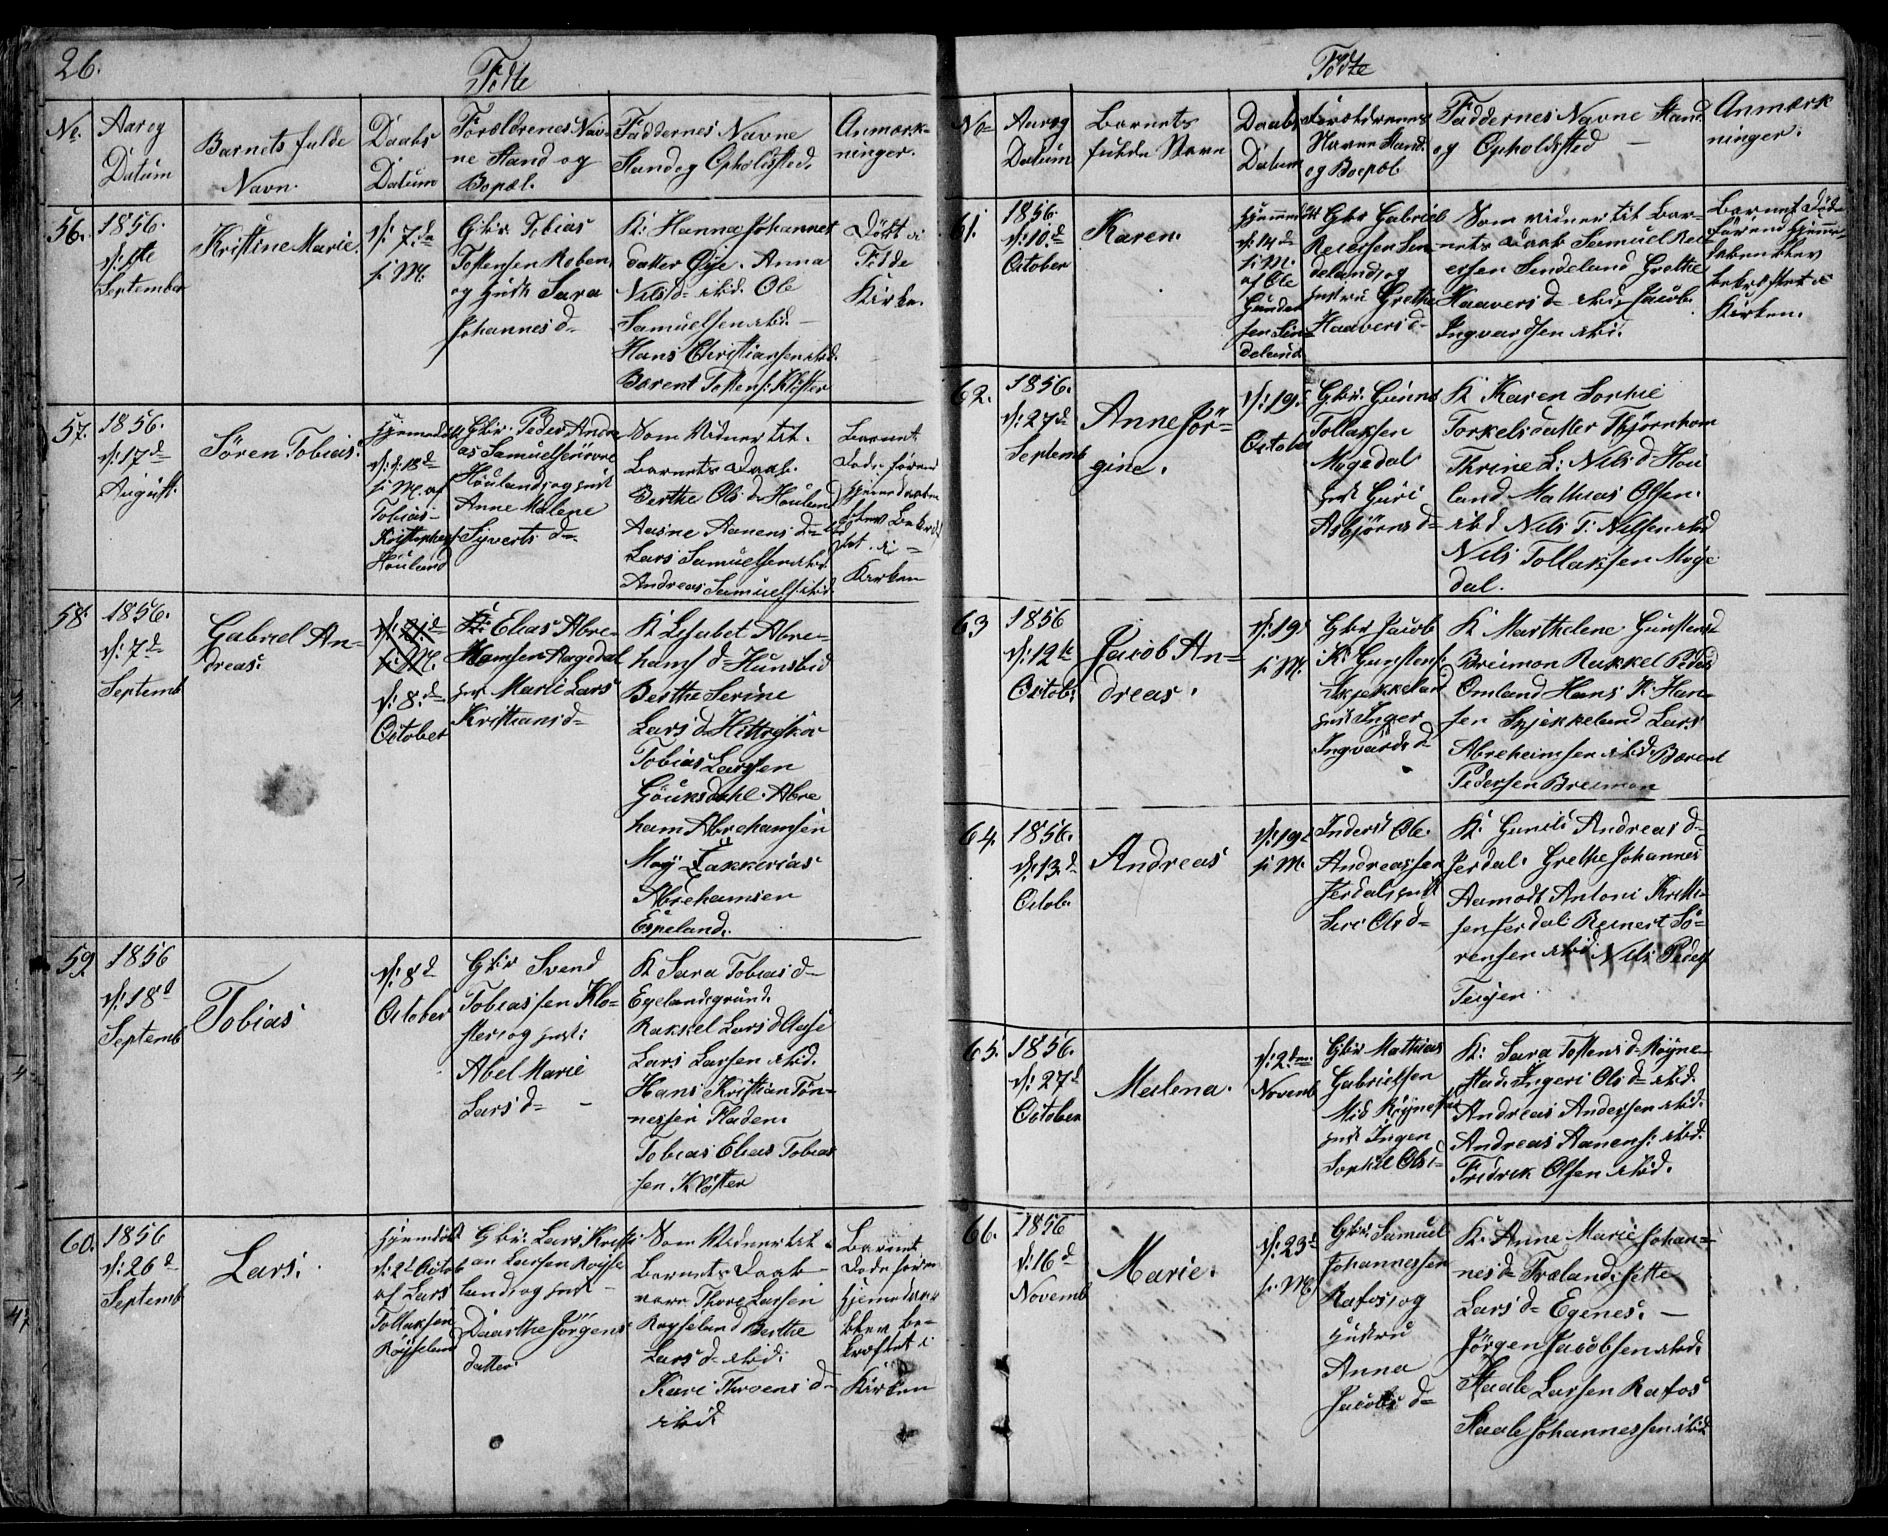 26.
Fødte
No.
Aar og
Datum
Barnets fulde
Navn.
Daabs
Datum
Forældrenes Nav-
ne Stand og
Bopæl.
Faddernes Navne
Stand og Opholdsted.
Anmærk-
ninger.
56.
1856.
September
Kristine Marie.
d: 7.de
f: M.
Gbr Tobias
Tostensen
og Sara
Johannesd=
K: Hanna Johannes
datter Øije. Anna
Nilsd= ibid. Ole
Samuelsen ibid.
Hans Christiansen ibid.
Barent Tostens: Kloster
Døbt i
Fede
Kirke.
57.
1856.
d: 17de
August.
Søren Tobias.
Hjemedøbt
f: M. af
Tobias
Houland
Gbr. Peder Andre
as Samuelsen
Houland og
Anne Malene
Syvertsd=
Som Vidner til
Barnets Daab.
Berthe Olsd= Houland
Aasine Aanensd=
Lars Samuelsen ibid.
Andreas Samuels: ibid.
Barnet
Døde førend
Hjemedaaben
blev Bekræf
tet i
Kirken
58.
1856.
d: 7de
Septemb
Gabriel An-
dreas.
d: 21.de
f: M.
d: 8.de
October
Elias Abre-
hamsen Aagedal
Marie Lars
Kristians d=
K Lisabet Abre-
hams d= Hunsbed
Berthe Serine
Lars d
Tobias Larsen
Abre
ham Abrehamsen
Moj Zakkerias
Abrehamsen
Espeland.
59.
1856
d: 18d
Septemb
Tobias
d: 8d
October
Gbr Svend
Tobiassen Klo-
ster og
Abel Marie
Lars d=
K Sara Tobias d=
Egelandsgrund.
Rakkel Lars d Aase
Lars Larsen ibid.
Hans Kristian Tøn-
nessen Fladen.
Tobias Elias Tobias
sen Kloster
60.
1856
d: 26d
Septemb
Lars.
Hjemedøbt
d: 2d Octob
af Lars
Tollaksen
Røyseland
Gbr: Lars Kristi
an Larsen Røyse
land og
Daarthe Jørgens
datter.
Som Vidner til
Barnets Daab
vare Thore Larsen
Røyseland Berthe
Lars d= ibid:
Kari Throens d=
ibid.
Barnet
Døde førend
Hjemedaab
blev be-
kræftet i
Kirken
Fødte
No
Aar og
Datum
Barnets
fulde Navn
Daabs
Datum
Forældrenes
Navne Stand
og Boepæl
Faddernes Navne Stand
og Opholdsted
Anmærk
ninger.
61.
1856.
d: 10.d
October
Karen.
Hjemmedøbt
d: 14d
f: M.
af Ole
Gunder
sen Sin
deland
Gbr Gabriel
Reiersen Sin
deland og
Hustru Grethe
Haavers d=
Som vidner til Bar-
nets Daab Samuel Rei
ersen Sindeland Grethe
Haavers d= ibid. Jacob
Ingvardsen ibid.
Barnet Døde
førend Hjeme-
daaben blev
bekræftet i
Kirken.
62.
1856.
d: 27d
Septemb
Anne Jør-
gine.
d: 19d
October
Gbr. Gunn
Tollaksen
Mygedal
Guri
Asbjørns d=
K Karen Sophie
Torkelsdatter Thjørnhom
Thrine L: Nils d Hou
land Mathias Olsen
ibd Nils T: Nilsen ibd
Nils Tollaksen Myge
dal.
63
1856
d: 12te
Octob:
Jacob An-
dreas.
d: 19.
f: M.
Gbr Jacob
K: Gunstens:
Skjekkeland
Inger
Ingvards d=
K Marthelene Gunstensd
Breimon Rakkel Peders
Omland Hans K: Han-
sen Skjekkeland Lars
Abreheimsen ibid. Barent
Pedersen Breimon
64.
1856.
d: 13.d
Octob.
Andreas
d: 19d
f: M.
Inderst Ole
Andreassen
Jerdal
Siri Ols d=
K: Gunild Andreas d=
Jerdal. Grethe Johannesd
Aamodt Antoni Kristi-
sen Jerdal Reinert Sö-
rensen ibid Nils Peders
65.
1856.
d: 27d
October
Malena.
d: 2den
Novemb
Gbr Mathias
Gabrielsen
Røynestad
Inger
Sophie Ols d=
K: Sara Tostens d= Røyne-
stad. Ingeri Ols d= ibid.
Andreas Andersen ibid.
Andreas Aanens: ibid.
Fredrik Olsen ibid.
66.
1856
d: 16d
Novemb
Marie.
d: 23d
f: M.
Gbr Samuel
Johannessen
Rafos og
Hustru
Anna
Jacobs d=
K: Anne Marie Johan-
nes d= Træland. Jette
Lars d= Egenes. —
Jørgen Jacobsen ibid.
Staale Larsen Rafos
Staale Johannessen ibid